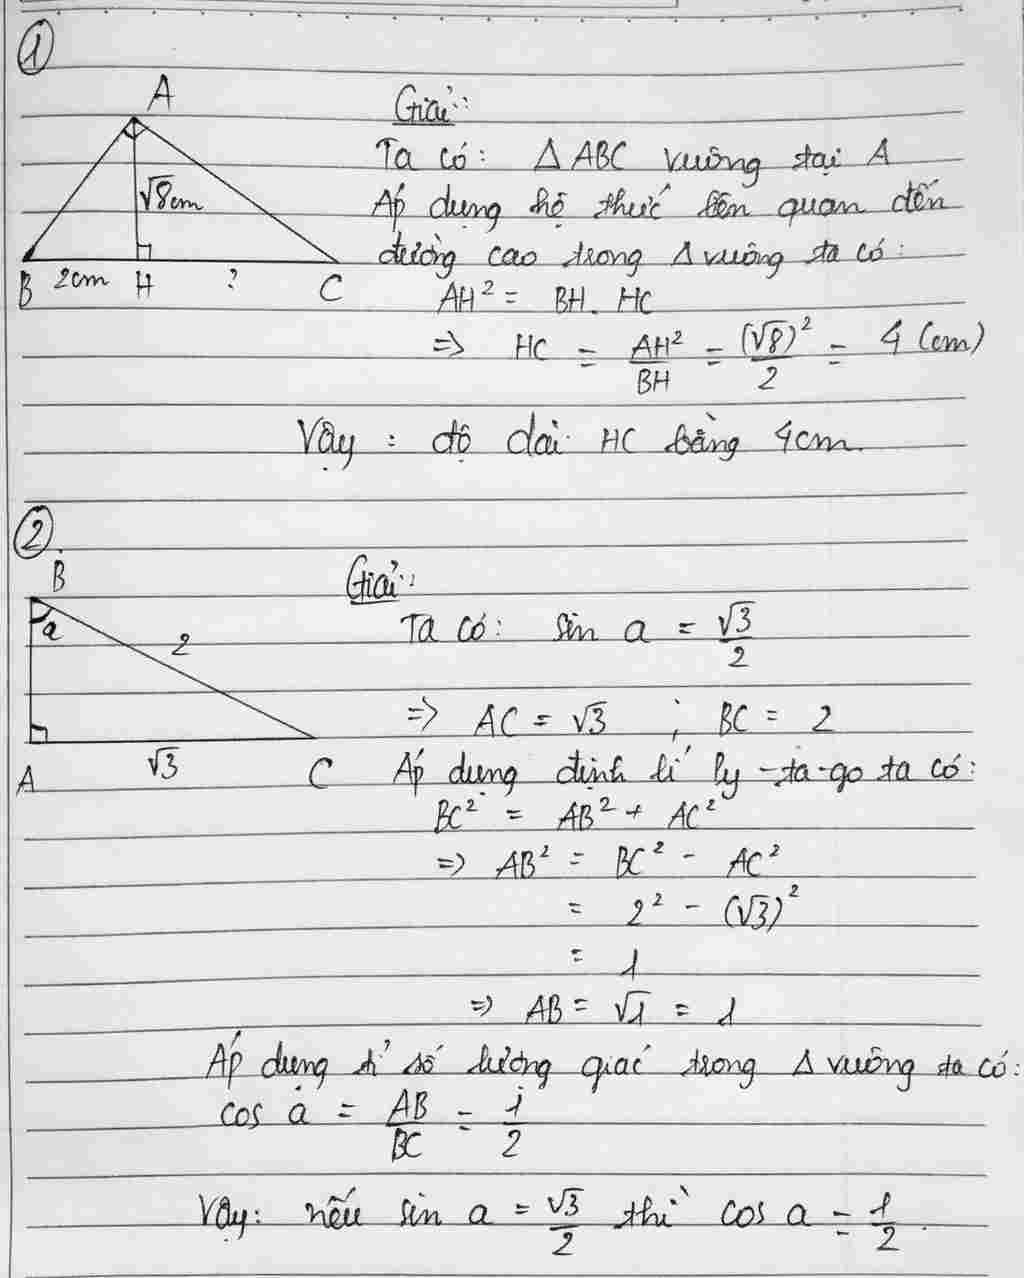 ①
A
√8cm
B 2cm H ? C
Giải:
Ta có: Δ ABC vuông tại A
Áp dụng hệ thức liên quan đến
đường cao trong Δ vuông ta có:
AH² = BH. HC
=> HC = AH²/BH = (√8)²/2 = 4 (cm)
Vậy : độ dài HC bằng 4cm.
②.
B
a
2
A √3 C
Giải:
Ta có: sin a = √3/2
=> AC = √3 ; BC = 2
Áp dụng định lí Py-ta-go ta có:
BC² = AB² + AC²
=> AB² = BC² - AC²
= 2² - (√3)²
= 1
=> AB = √1 = 1
Áp dụng tỉ số lượng giác trong Δ vuông ta có:
cos a = AB/BC = 1/2
Vậy: nếu sin a = √3/2 thì cos a = 1/2.